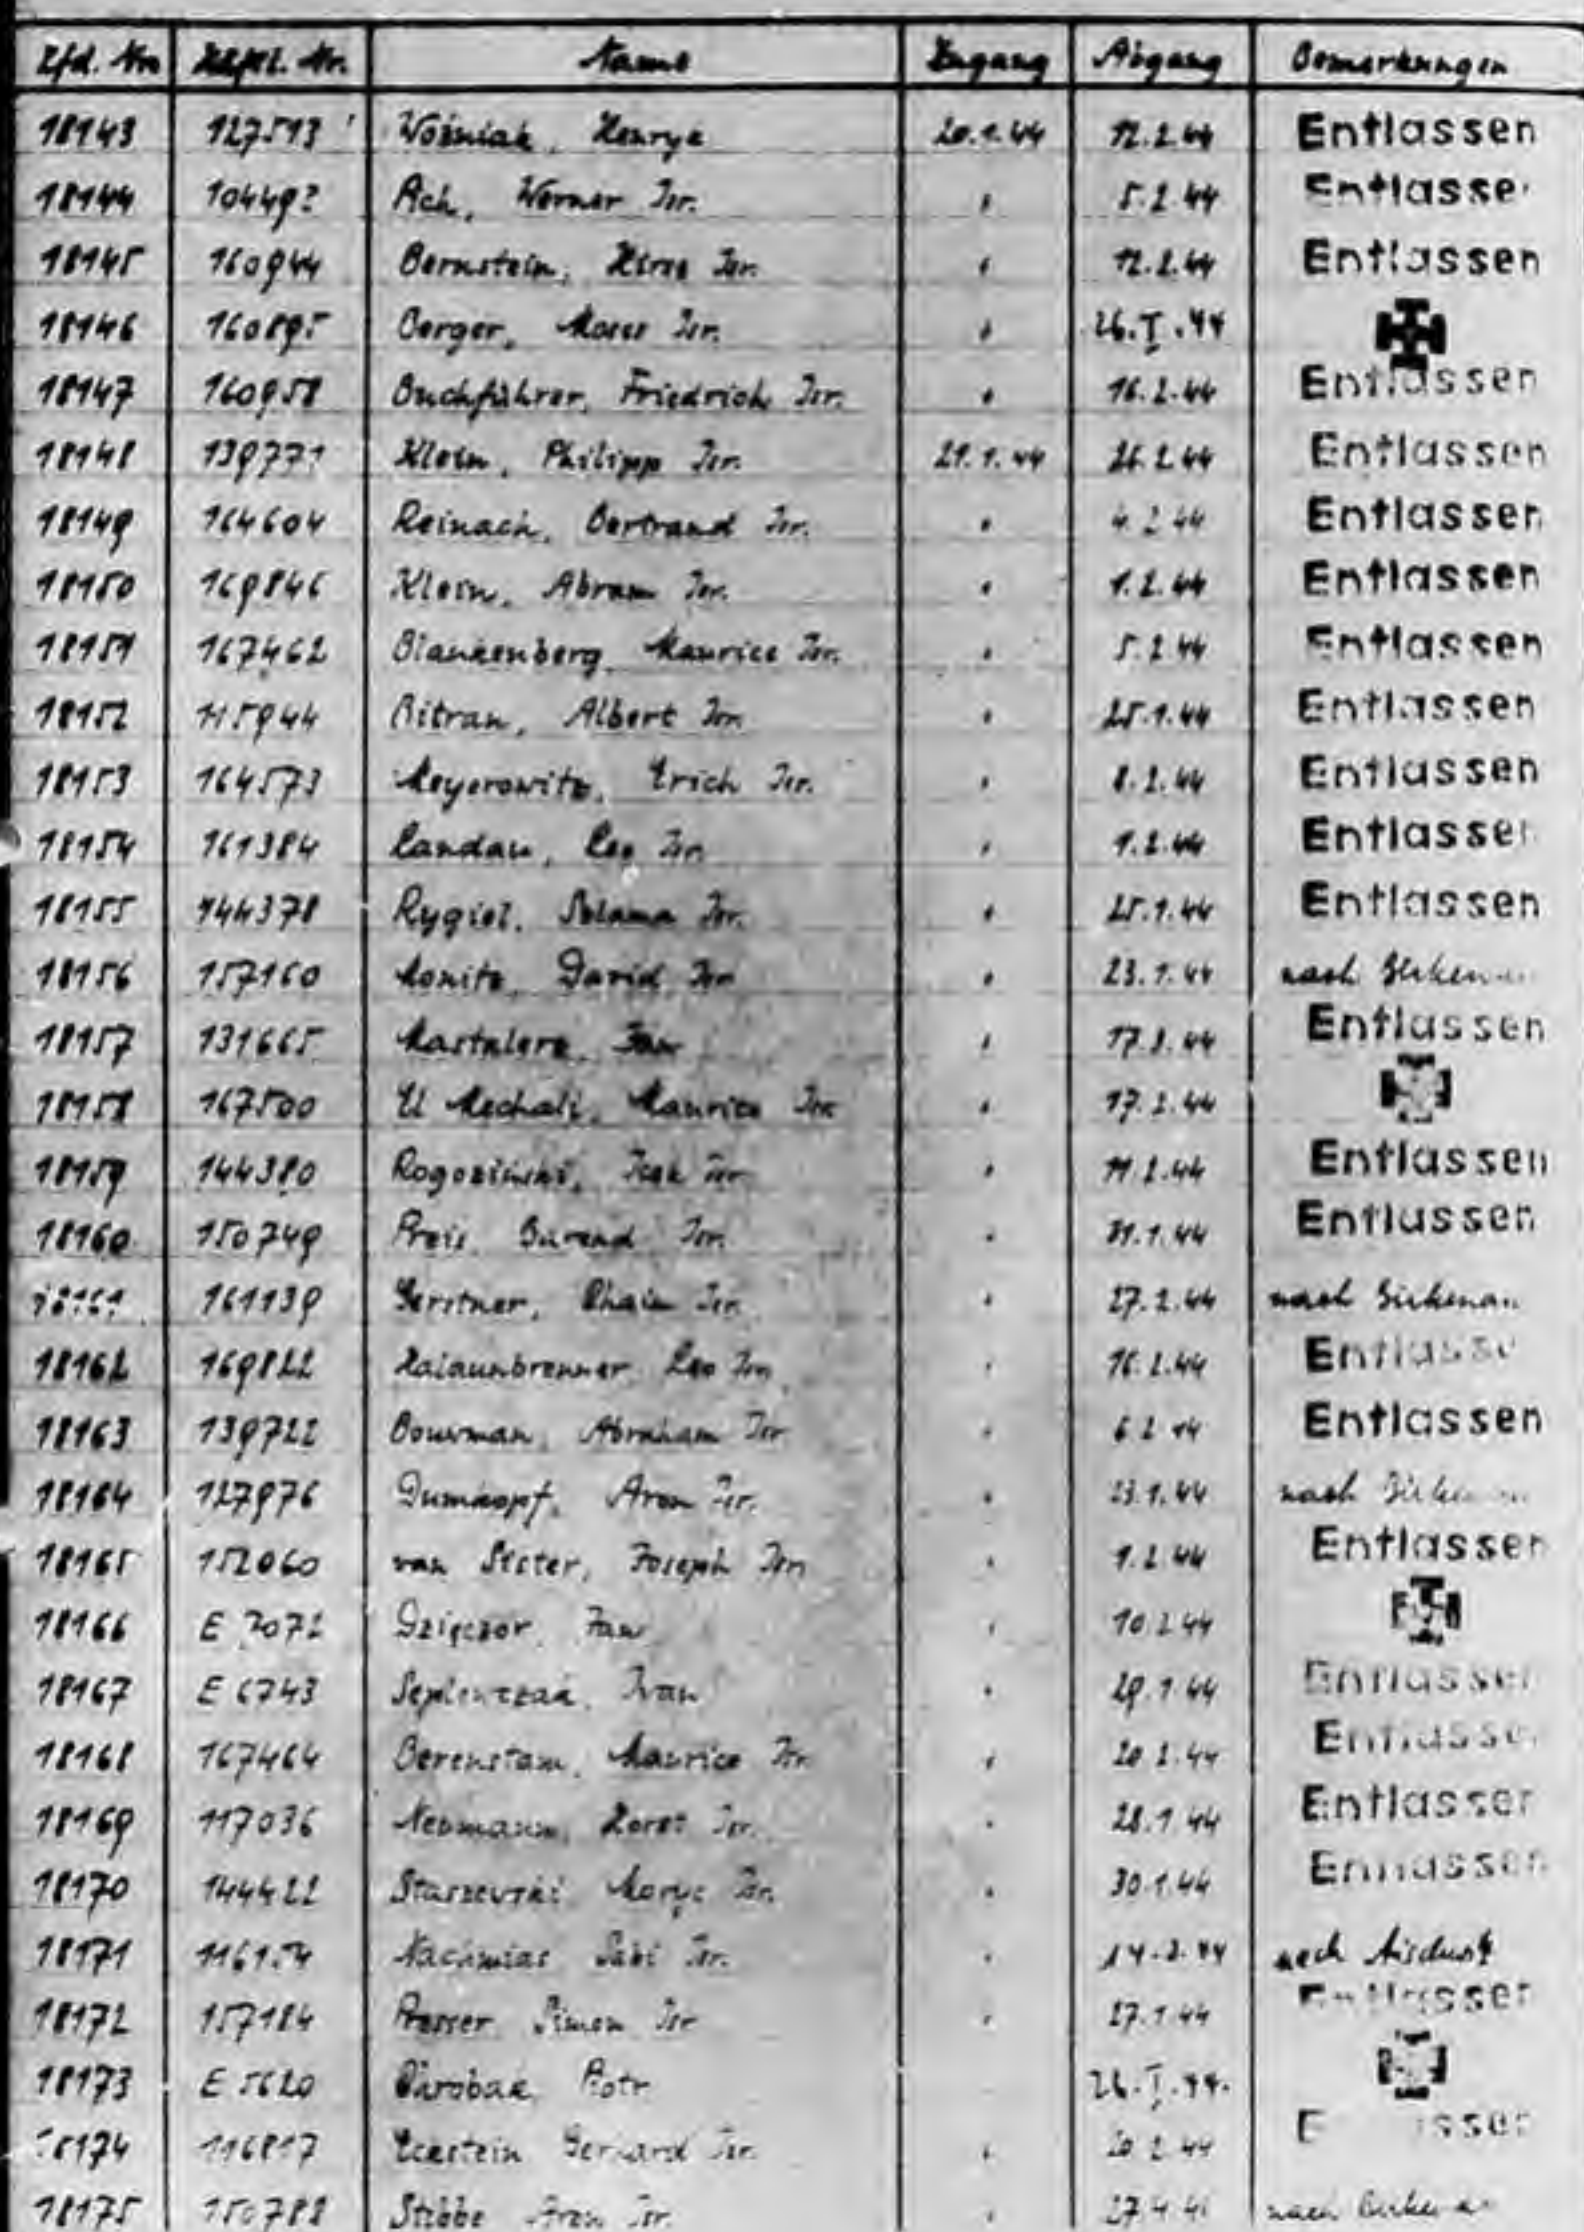 Lfd. Nr. Häftl. Nr. Name Zugang Abgang Bemerkungen
18143 127513 Woźniak, Henryk 20.1.44 12.2.44 Entlassen
18144 Ach, Werner Isr. " 5.2.44 Entlassen
18145 160944 Bernstein, Hirsz Isr. " 12.2.44 Entlassen
18146 160895 Berger, Moses Isr. " 26.I.44
18147 160958 Buchführer, Friedrich Isr. " 16.2.44 Entlassen
18148 139771 Klein, Philipp Isr. 21.1.44 26.2.44 Entlassen
18149 164604 Reinach, Bertrand Isr. " 4.2.44 Entlassen
18150 169846 Klein, Abram Isr. " 1.2.44 Entlassen
18151 167462 Blankenberg, Maurice Isr. " 5.2.44 Entlassen
18152 115944 Bitran, Albert Isr. " 25.1.44 Entlassen
18153 164573 Meyerowitz, Erich Isr. " 8.2.44 Entlassen
18154 161384 Landau, Leo Isr. " 1.2.44 Entlassen
18155 144378 Rygiel, Szlama Isr. " 25.1.44 Entlassen
18156 157160 David Isr. " 23.1.44 nach Birkenau
18157 131665 Mastalerz, Jan " Entlassen
18158 167500 El Mechali, Maurice Isr. " 17.2.44
18159 144380 Rogoziński, Isr. " 11.2.44 Entlassen
18160 150749 Preis, Barend Isr. " 31.1.44 Entlassen
18161 161139 Gerstner, Chaim Isr. " 27.2.44 nach Birkenau
18162 169822 Halaunbrenner, Leo Isr. " 16.2.44 Entlassen
18163 139722 Bouwman, Abraham Isr. " 6.2.44 Entlassen
18164 127976 Dumkopf, Aron Isr. " 23.1.44 nach Birkenau
18165 152060 van Joseph Isr. " 1.2.44 Entlassen
18166 Jan " 10.2.44
18167 E 6743 Iwan " 29.1.44 Entlassen
18168 167464 Berenstam, Maurice Isr. " 20.2.44 Entlassen
18169 117036 Neumann, Horst Isr. " 28.1.44 Entlassen
18170 144422 Staszewski, Isr. " 30.1.44 Entlassen
18171 Nachmias, Isr. " nach
18172 157184 Presser, Simon Isr. " 27.1.44 Entlassen
18173 E 5620 Piotr 26.I.44.
18174 116817 Eckstein, Gerhard Isr. " 20.2.44
18175 150788 Stibbe, Aron Isr. " nach Birkenau